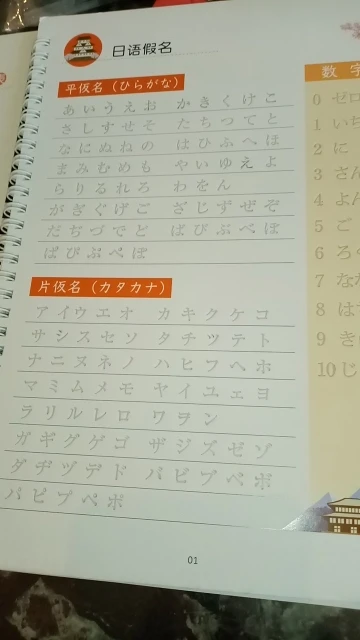 日语假名
平仮名（ひらがな）
あいうえお かきくけこ
さしすせそ たちつてと
なにぬねの はひふへほ
まみむめも やいゆえよ
らりるれろ わをん
がぎぐげご ざじずぜぞ
だぢづでど ばびぶべぼ
ぱぴぷぺぽ
片仮名（カタカナ）
アイウエオ カキクケコ
サシスセソ タチツテト
ナニヌネノ ハヒフヘホ
マミムメモ ヤイユエヨ
ラリルレロ ワヲン
ガギグゲゴ ザジズゼゾ
ダヂヅデド バビブベボ
パピプペポ
数字
0 ゼロ
1 いち
2 に
3 さん
4 よん
5 ご
6 ろ
7 な
8 は
9 き
10 じ
01